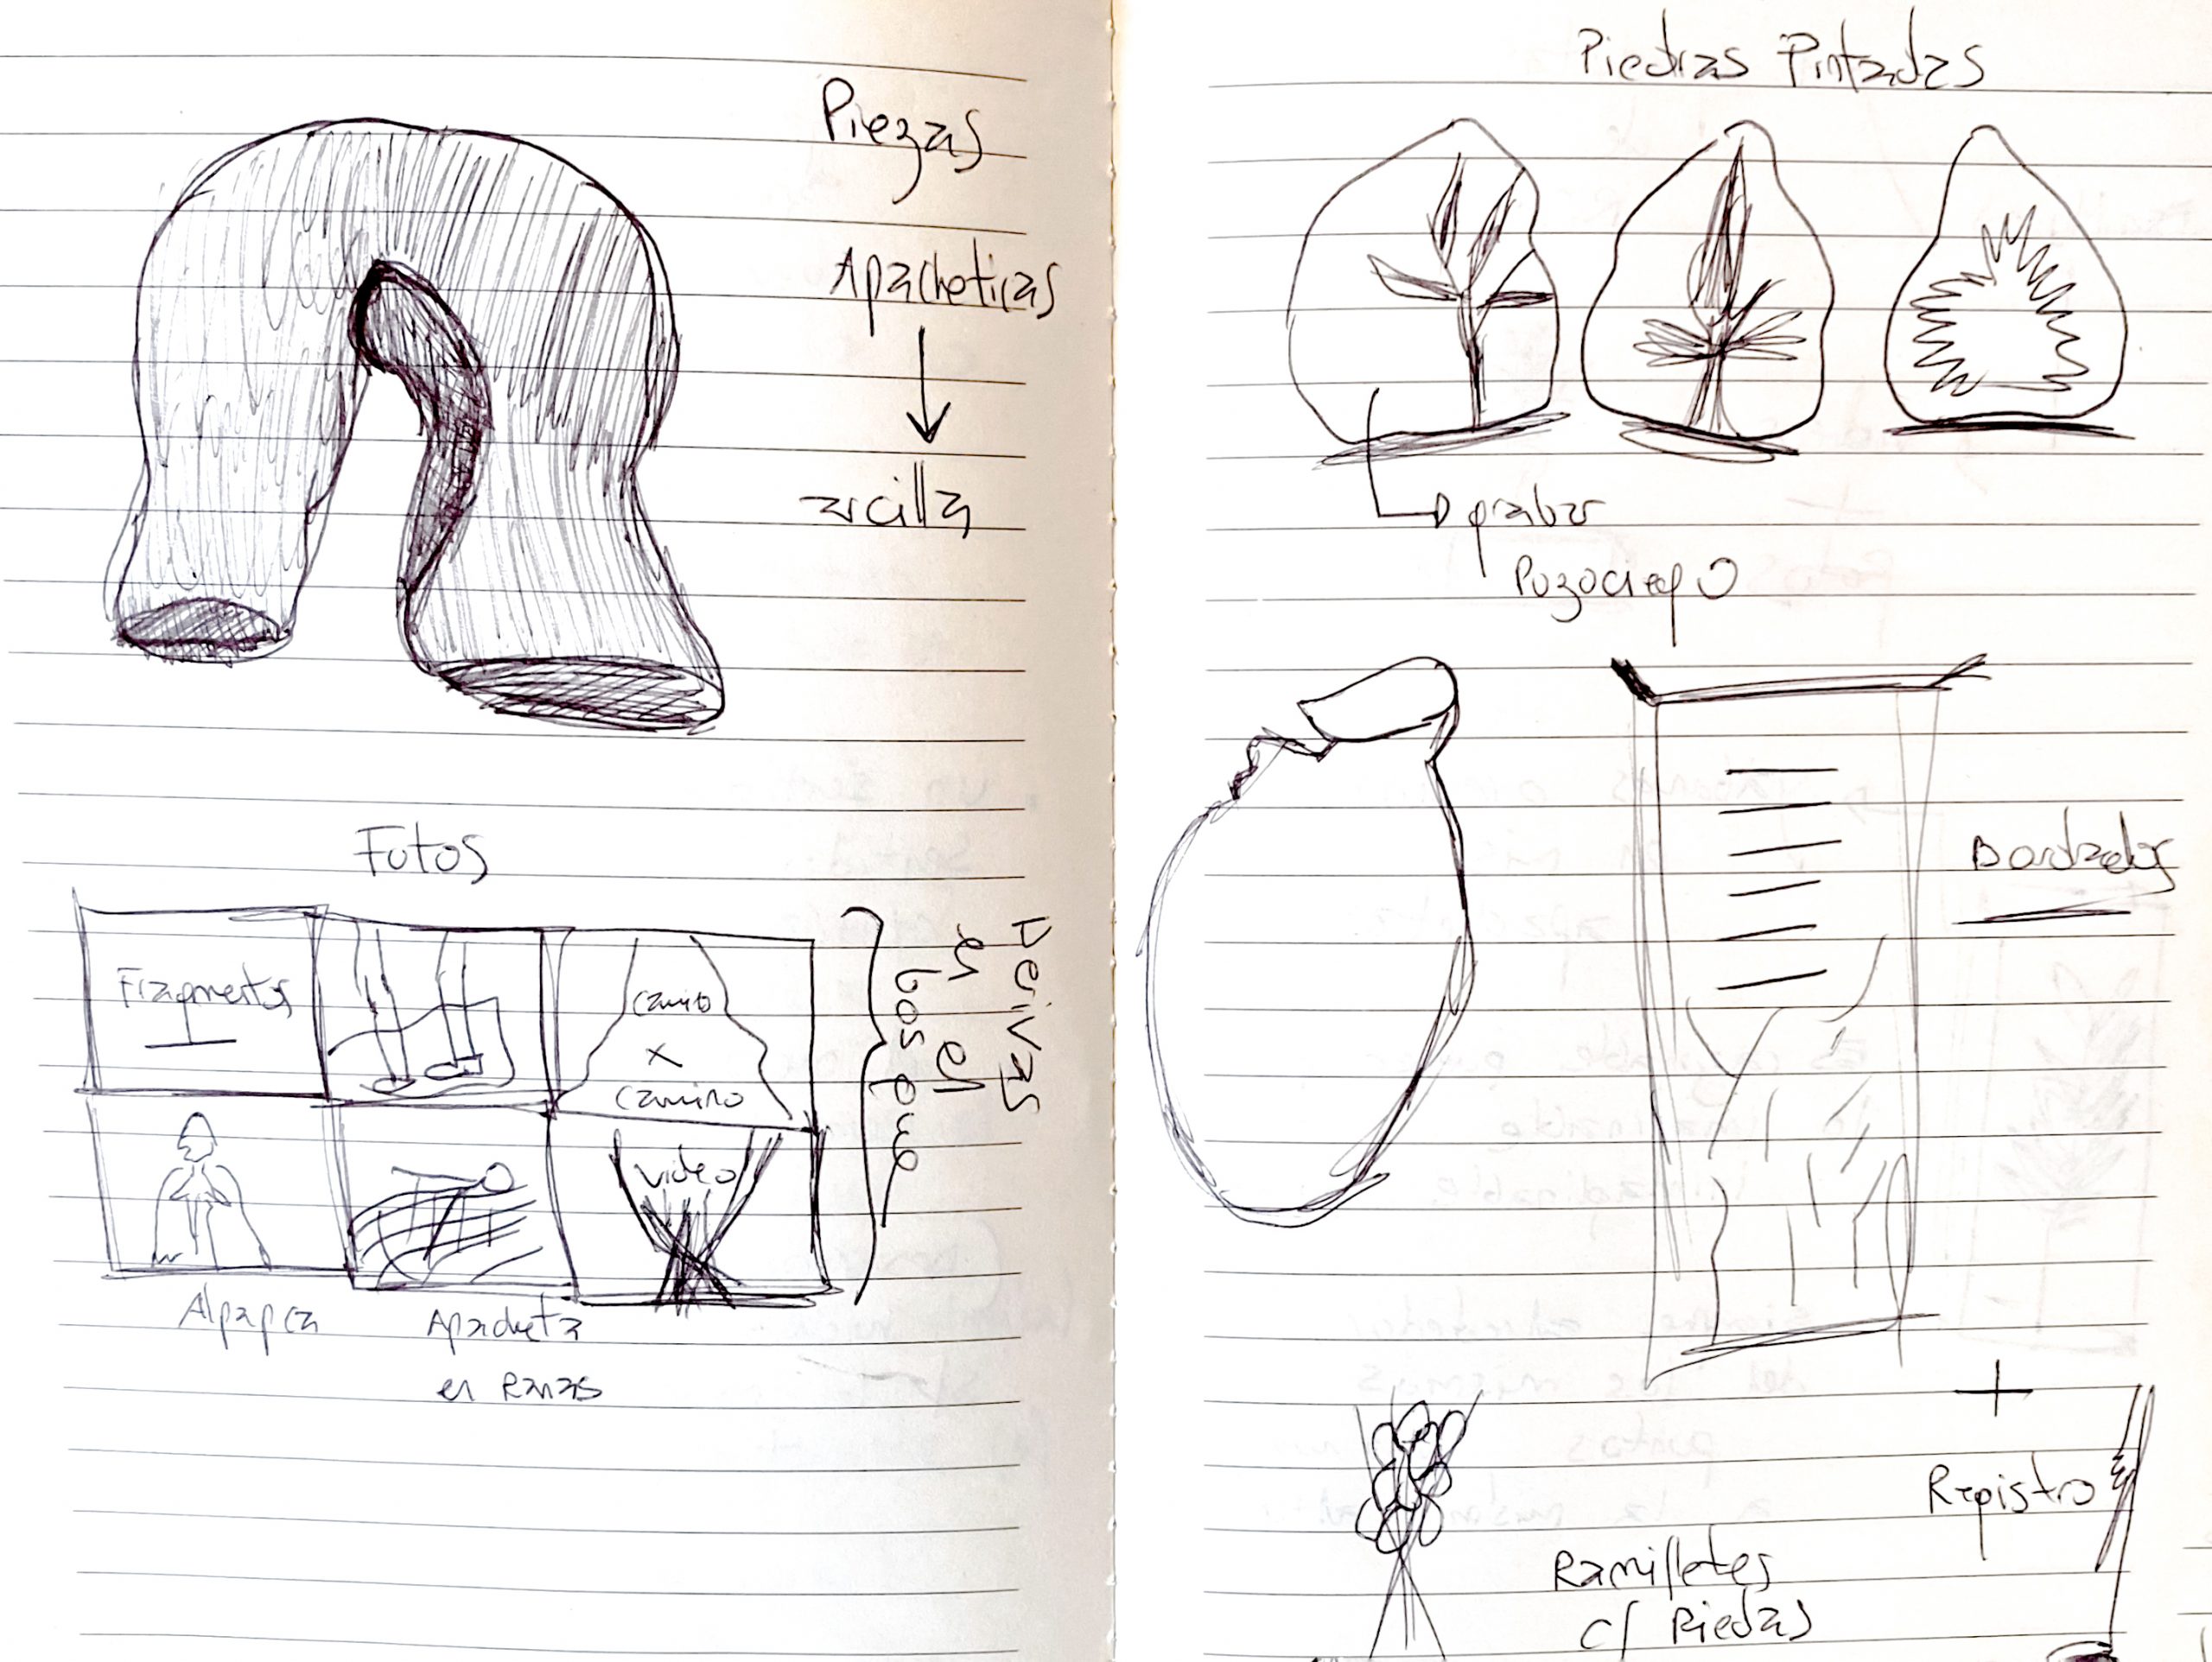 Piezas
Apacheticas
arcilla
Fotos
Fragmentos
Camino
x
camino
video
Derivas
en el
bosque
Alpapca
Apacheta
en Ranas
Piedras Pintadas
grabar
Pozociego
Bordados
+
Registro
Ramilletes
c/ Piedas